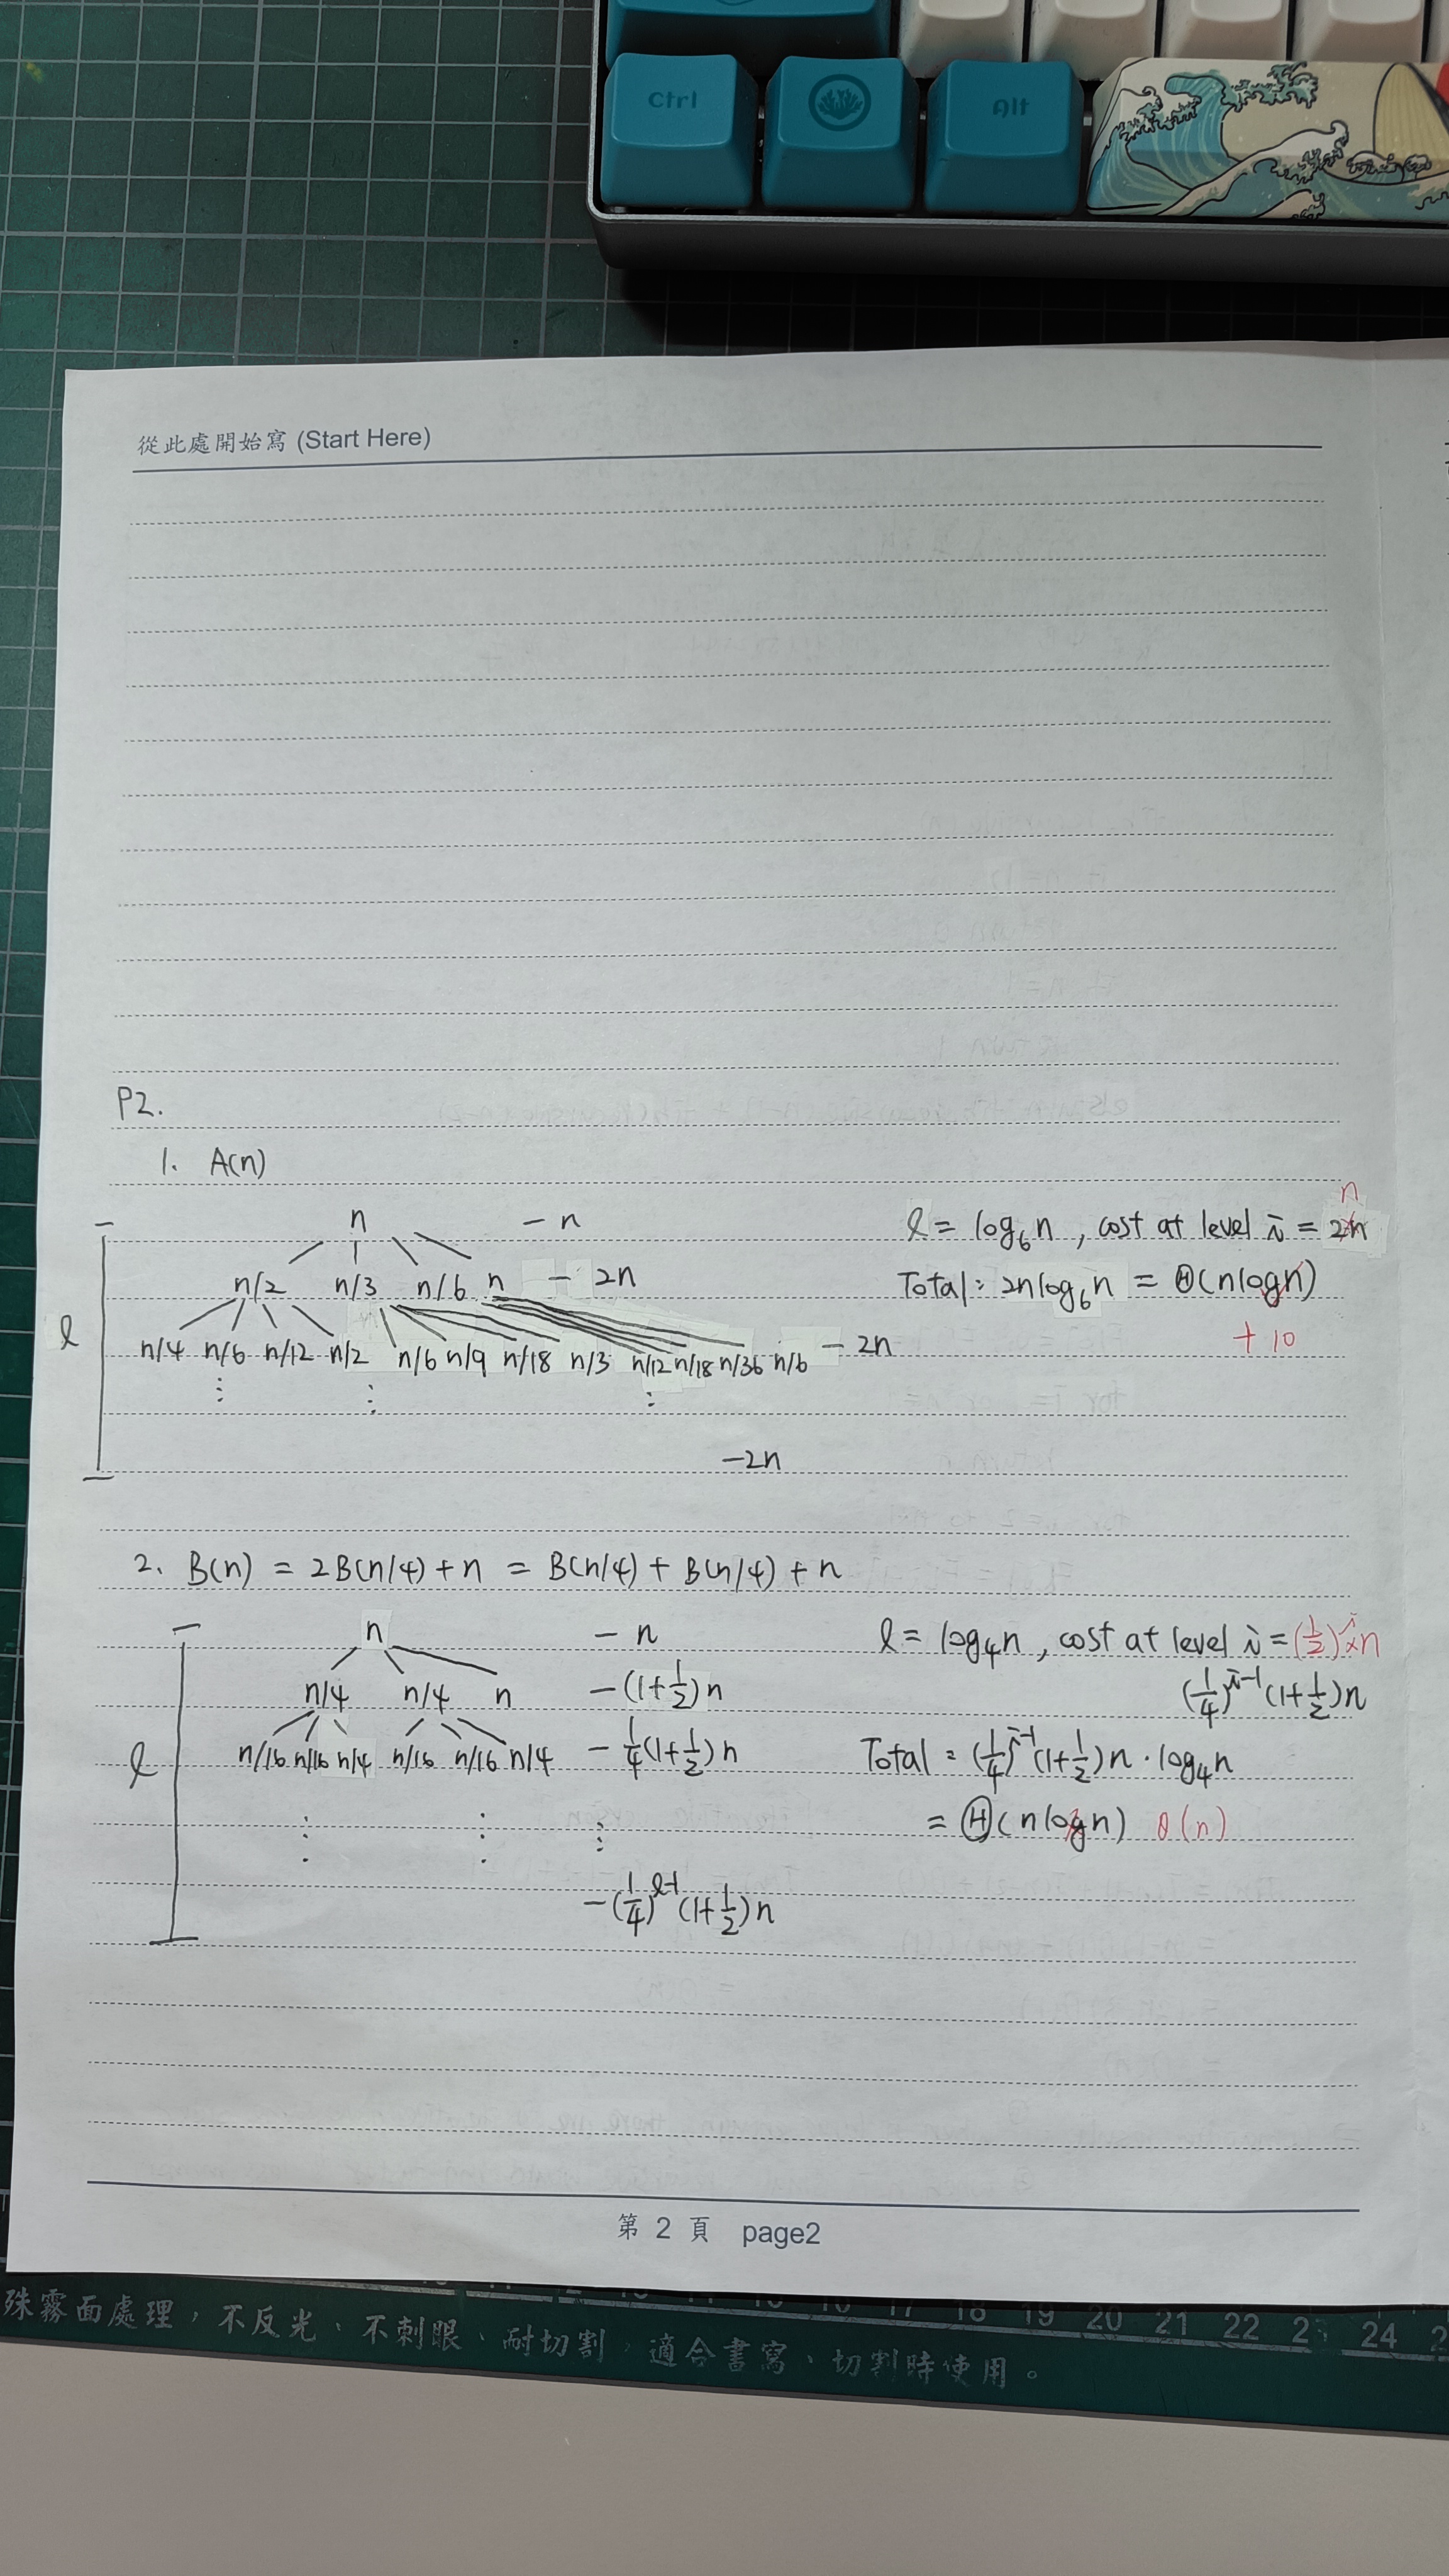 Ctrl
Alt
從此處開始寫 (Start Here)
P2.
1. A(n)
n — n
n/2 n/3 n/6 n — 2n
n/4 n/6 n/12 n/2 n/6 n/9 n/18 n/3 n/12 n/18 n/36 n/6 — 2n
⋮ ⋮ ⋮
—2n
l
n
l = log₆n , cost at level i = 2n
Total: 2nlog₆n = Θ(nlogn)
+10
2. B(n) = 2B(n/4) + n = B(n/4) + B(n/4) + n
n — n
n/4 n/4 n — (1+1/2)n
n/16 n/16 n/4 n/16 n/16 n/4 — 1/4(1+1/2)n
⋮ ⋮ ⋮
—(1/4)^(l-1)(1+1/2)n
l
l = log₄n , cost at level i = (1/2)^i×n
(1/4)^(i-1)(1+1/2)n
Total = (1/4)^(i-1)(1+1/2)n · log₄n
= Θ(nlogn) θ(n)
第 2 頁 page2
17 18 19 20 21 22 2 24 2
殊霧面處理，不反光、不刺眼、耐切割，適合書寫、切割時使用。